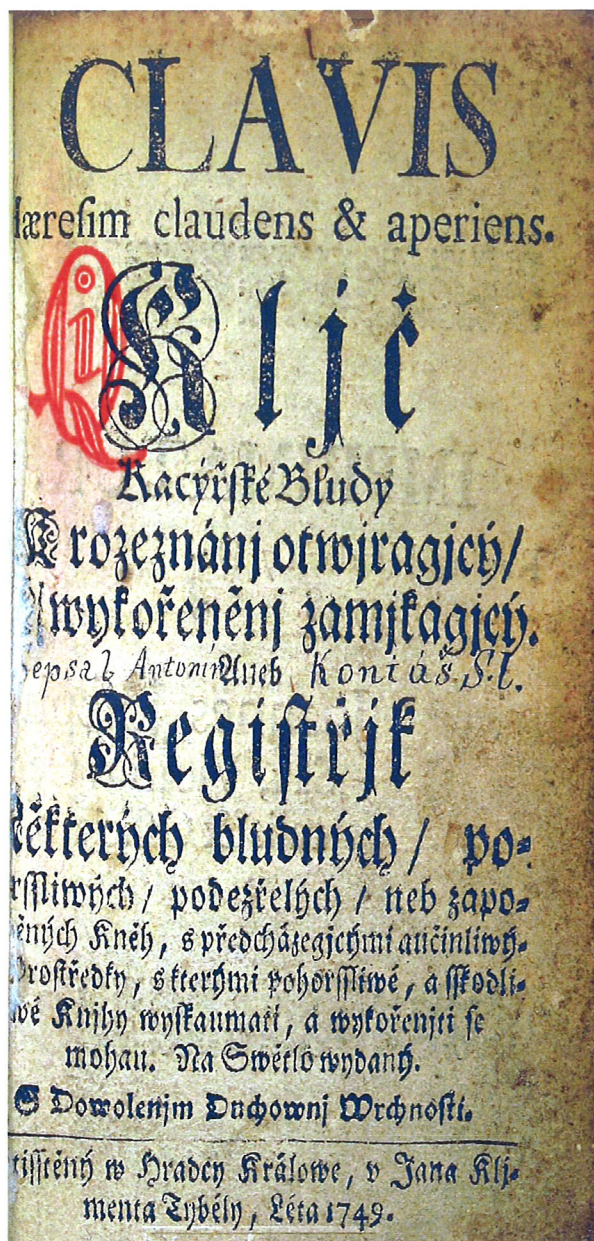 CLAVIS
Hæreſim claudens & aperiens.
Kljč
Kacýřſké Bludy
K rozeznánj otwjragjcý/
A wykořeněnj zamjkagjcý.
Sepsal Antonín Aneb Koniáš S.I.
Regiſtřjk
Některých bludných/ po⸗
rſſliwých/ podezřelých/ neb zapo⸗
ěných Kněh, s předcházegjcými aučinliwý⸗
Proſtředky, s kterými pohorſſliwé, a ſſkodli⸗
wé Knjhy wyſkaumati, a wykořenjti ſe
mohau. Na Swětlo wydaný.
S Dowolenjm Duchownj Wrchnoſti.
tiſſtěný w Hradcy Králowe, v Jana Klj⸗
menta Tybély, Léta 1749.